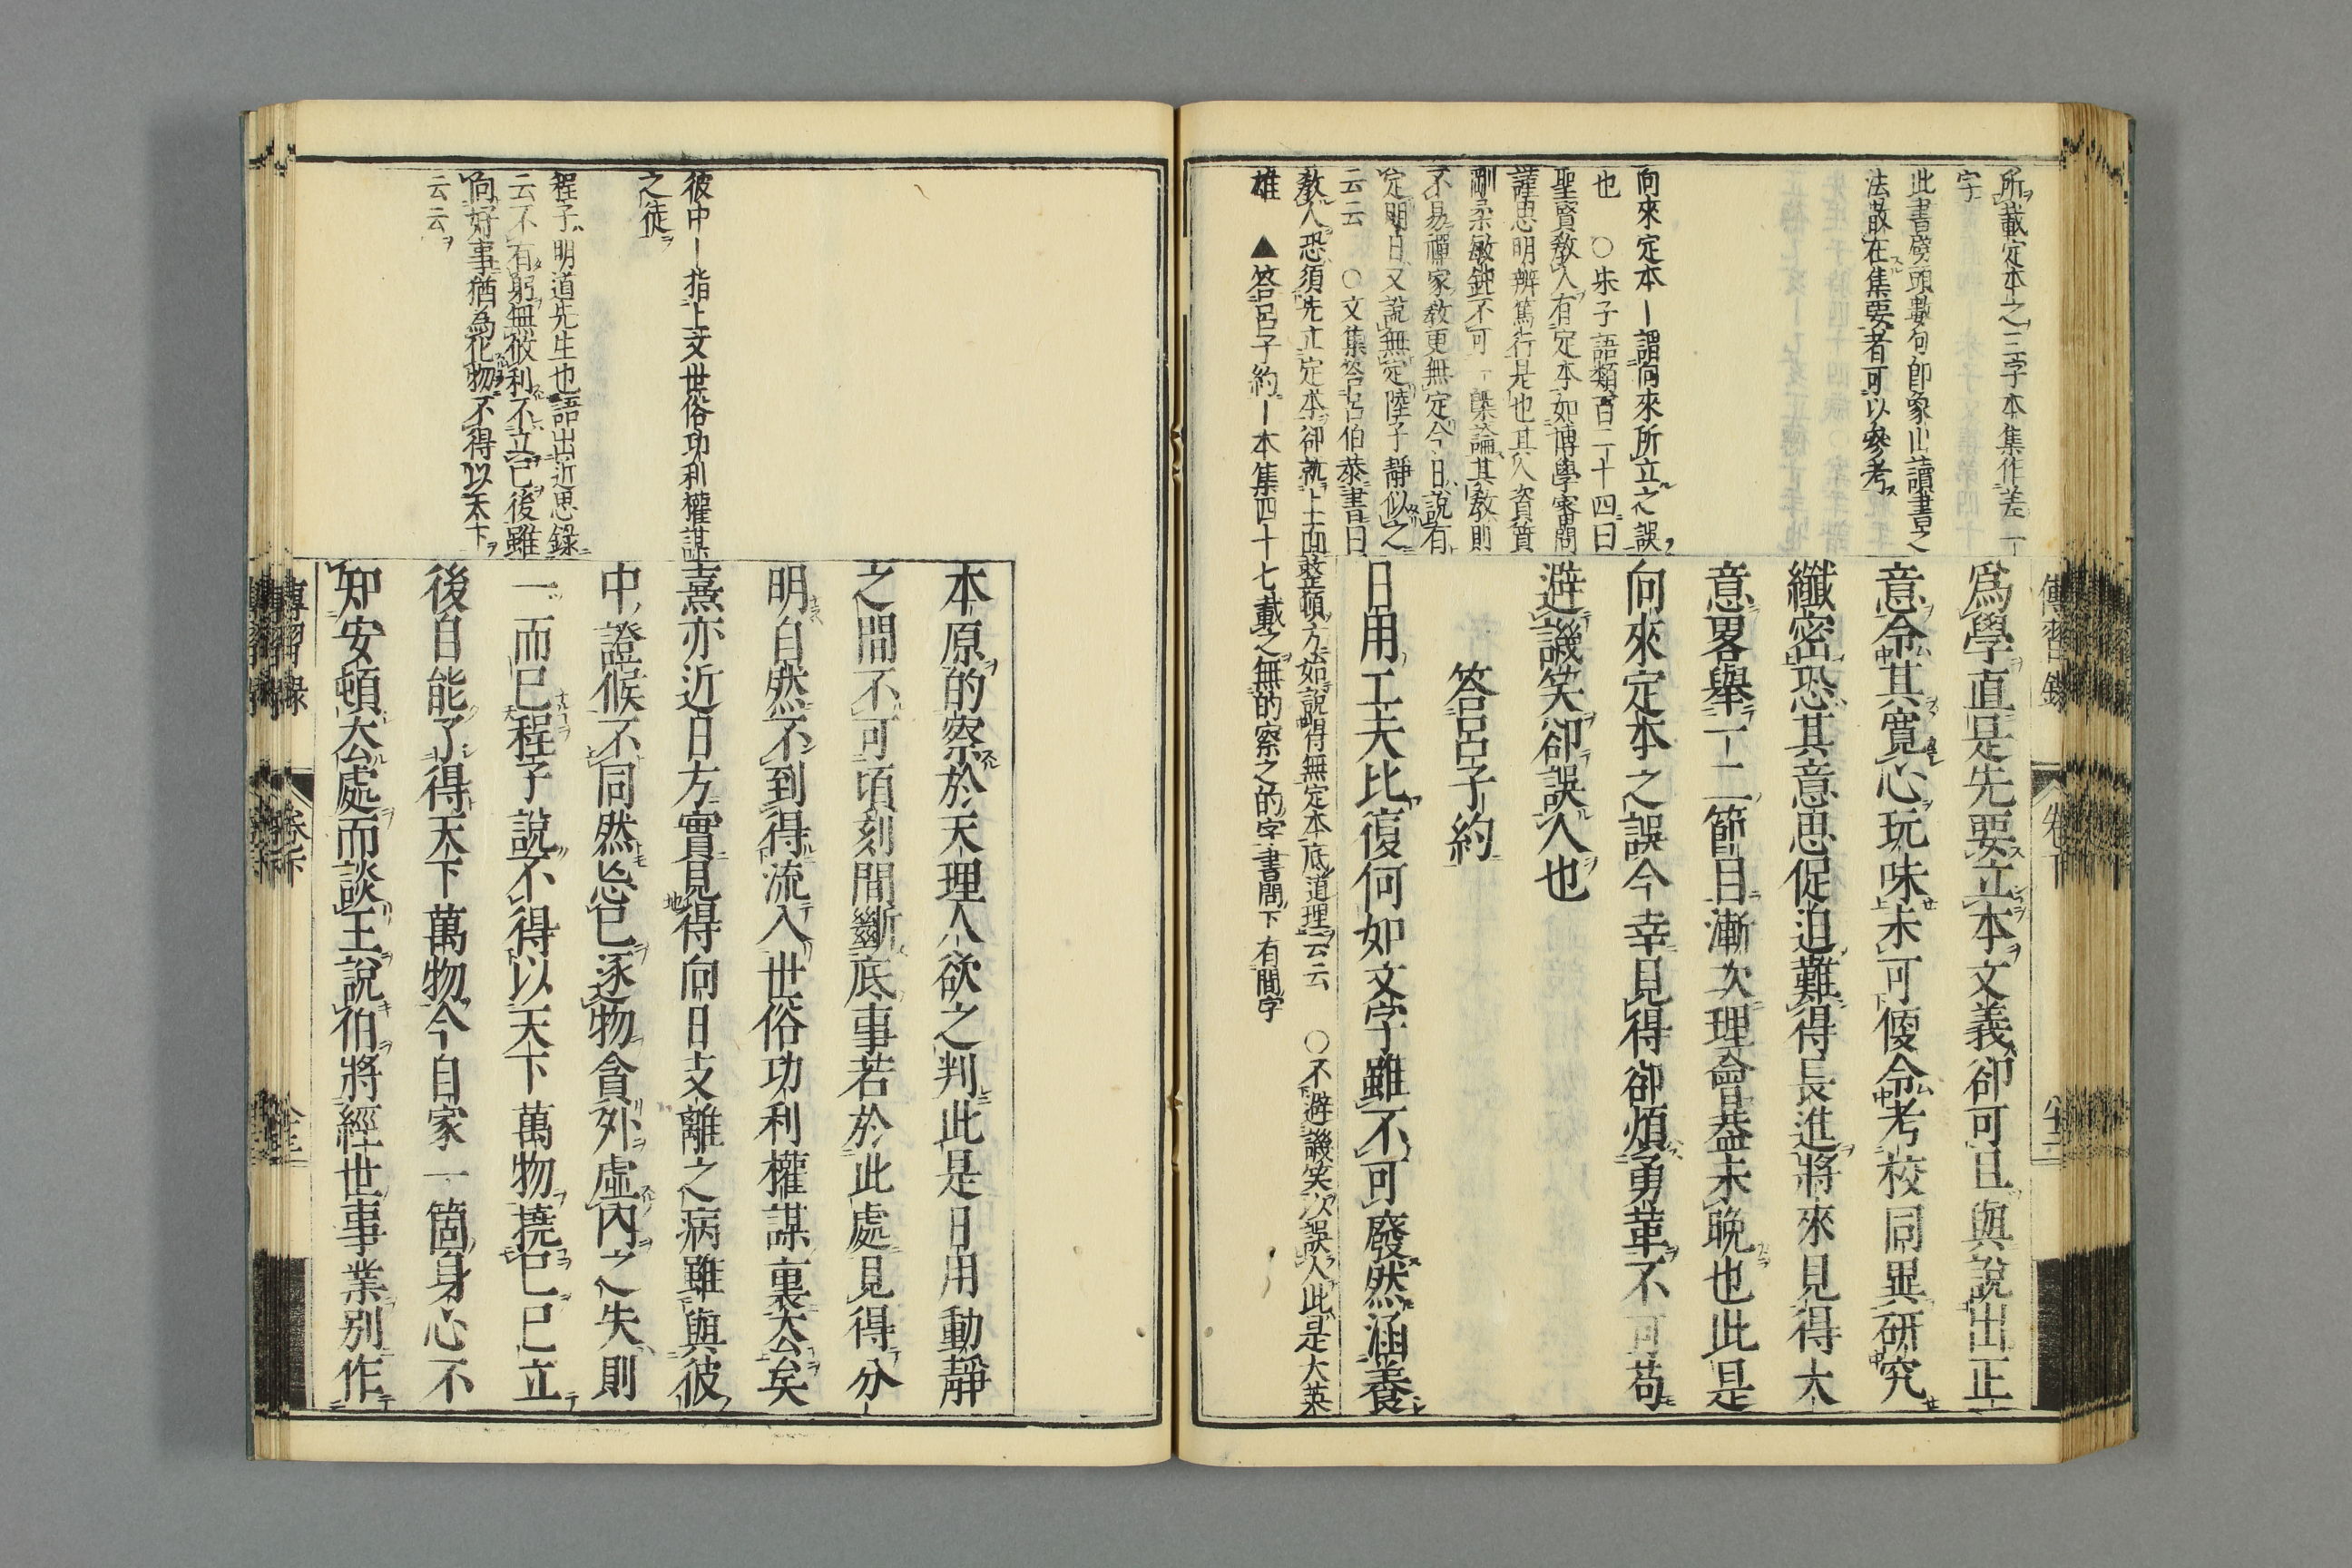 所載定本之三字本集作差一
字
此書發頭數句卽象山讀書之
法散在集要者可以參考
向來定本一謂向來所立之誤
也　○朱子語類百二十四曰
聖賢教人有定本如博學審問
謹思明辨篤行是也其人資質
剛柔敏鈍不可一槩論其教則
不易禪家教更無定今日說有
定明日又說無定陸子靜似之
云云　○文集答呂伯恭書曰
教人恐須先立定本卻就上面整頓方始說得無定本底道理云云　○不避譏笑次誤人此是大英
雄　▲答呂子約一本集四十七載之無的察之的字書問下有間字
爲學直是先要立本文義卻可且與說出正
意令其寬心玩味未可便令考校同異研究
纖密恐其意思促迫難得長進將來見得大
意畧舉一二節目漸次理會蓋未晚也此是
向來定本之誤今幸見得卻煩勇革不可苟
避譏笑卻誤人也
答呂子約
日用工夫比復何如文字雖不可廢然涵養
傳習錄
卷下
彼中一指上文世俗功利權謀
之徒
程子明道先生也語出近思錄
云不有躬無攸利不立己後雖
向好事猶爲化物不得以天下
云云
本原的察於天理人欲之判此是日用動靜
之間不可頃刻間斷底事若於此處見得分
明自然不到得流入世俗功利權謀裏去矣
熹亦近日方實見得向日支離之病雖與彼
中證候不同然忘己逐物貪外虛內之失則
一而已程子說不得以天下萬物撓己己立
後自能了得天下萬物今自家一箇身心不
知安頓去處而談王說伯將經世事業別作
傳習錄
卷下